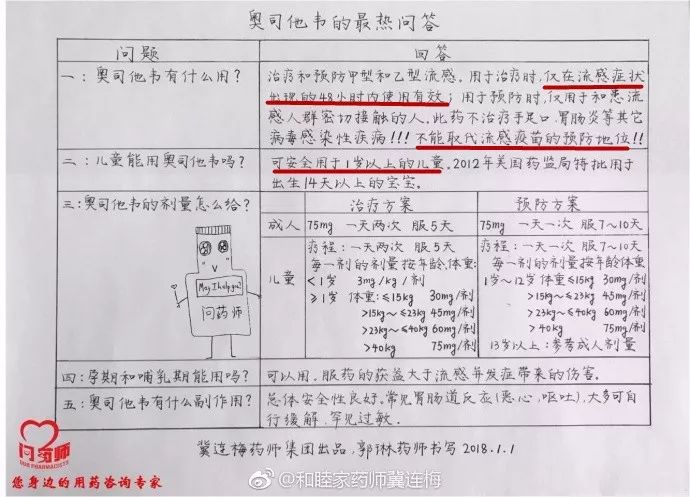 奥司他韦的最热问答
问题
回答
一：奥司他韦有什么用？
治疗和预防甲型和乙型流感。用于治疗时，仅在流感症状
出现的48小时内使用有效；用于预防时，仅用于和患流
感人群密切接触的人。此药不治疗手足口、胃肠炎等其它
病毒感染性疾病!!! 不能取代流感疫苗的预防地位!!
二：儿童能用奥司他韦吗？
可安全用于1岁以上的儿童。2012年美国药监局特批用于
出生14天以上的宝宝。
三：奥司他韦的剂量怎么给？
May I help you?
问药师
治疗方案
预防方案
成人
75mg 一天两次 服5天
75mg 一天一次 服7～10天
儿童
疗程：一天两次 服5天
每一剂的剂量按年龄、体重：
<1岁 3mg/kg/剂
≥1岁 体重：≤15kg 30mg/剂
>15kg~≤23kg 45mg/剂
>23kg~≤40kg 60mg/剂
>40kg 75mg/剂
疗程：一天一次 服7～10天
每一剂的剂量按年龄、体重：
1岁～12岁 体重≤15kg 30mg/剂
>15kg~≤23kg 45mg/剂
>23kg~≤40kg 60mg/剂
>40kg 75mg/剂
13岁以上：参考成人剂量
四：孕期和哺乳期能用吗？
可以用。服药的获益大于流感并发症带来的伤害。
五：奥司他韦有什么副作用？
总体安全性良好。常见胃肠道反应（恶心，呕吐），大多可自
行缓解，罕见过敏。
冀连梅药师集团出品，郭琳药师书写 2018.1.1
问药师
OUR PHARMACISTS
您身边的用药咨询专家
@和睦家药师冀连梅